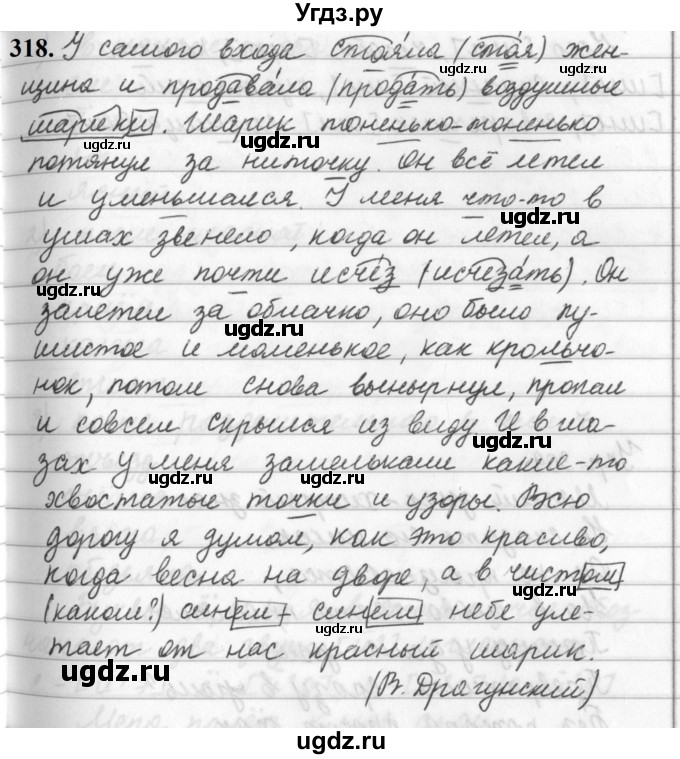 Угдз.ру
318. У самого входа стояла (стоя) жен-
щина и продавала (продать) воздушные
шарики. Шарик тоненько-тоненько
потянул за ниточку. Он всё летел
и уменьшался. У меня что-то в
ушах звенело, когда он летел, а
он уже почти исчез (исчезать). Он
залетел за облачко, оно было пу-
шистое и маленькое, как крольчо-
нок, потом снова вынырнул, пропал
и совсем скрылся из виду И в гла-
зах у меня замелькали какие-то
хвостатые точки и узоры. Всю
дорогу я думал, как это красиво,
когда весна на дворе, а в чистом
(каком?) синем-синем небе уле-
тает от нас красный шарик.
(В. Драгунский)
ugdz.ru